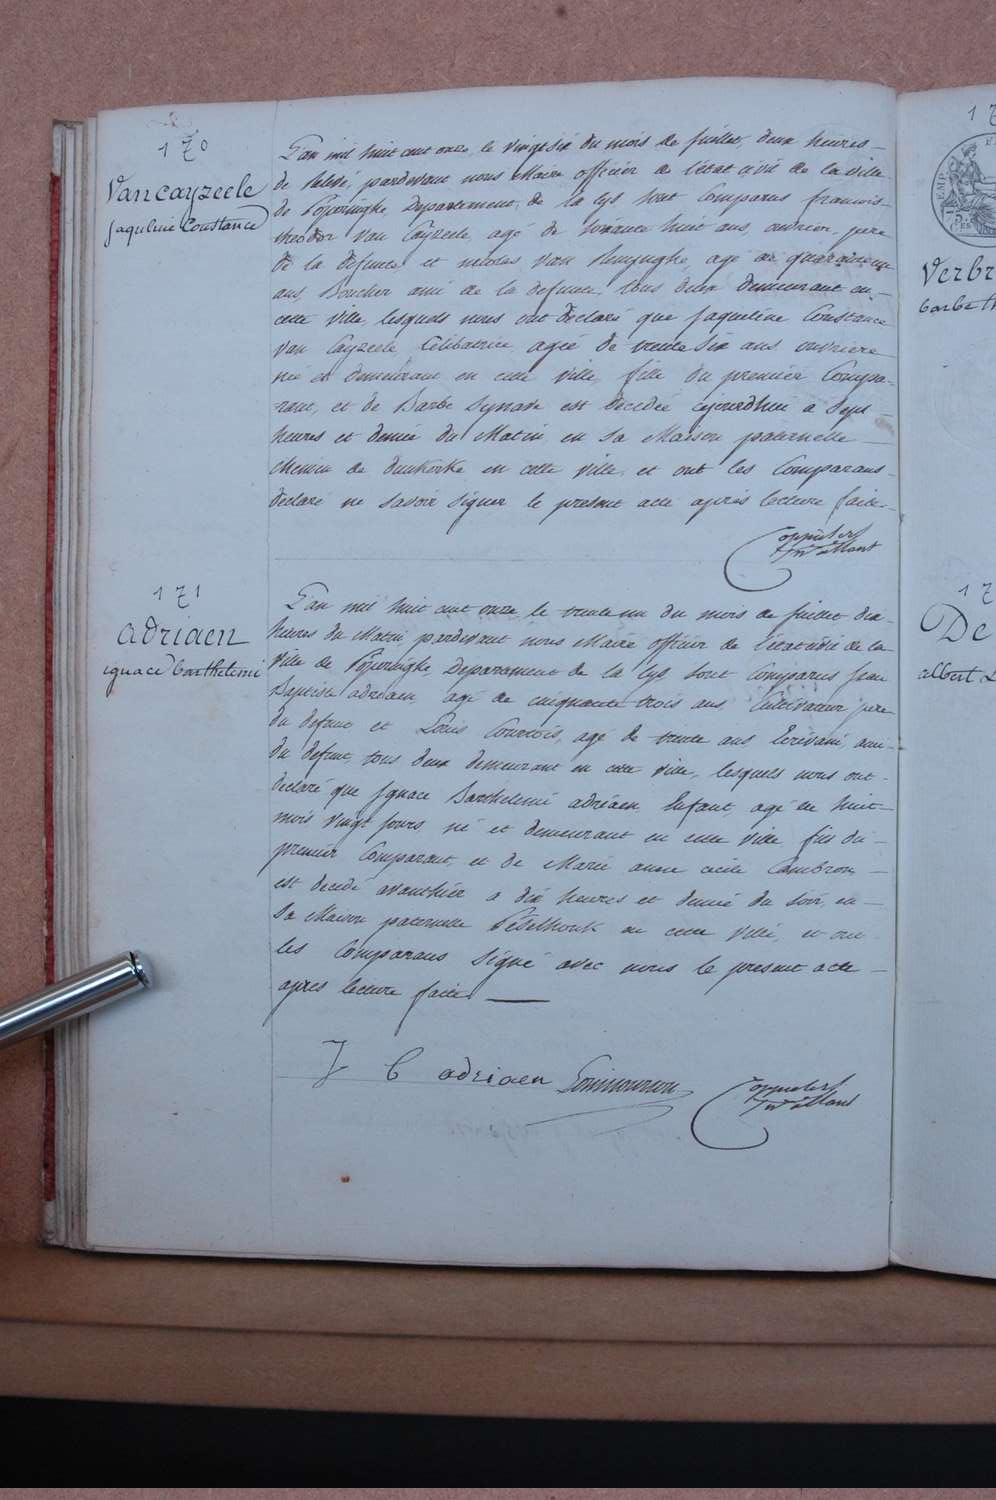 170
Van cayzeele
Jaqueline Constance
L'an mil huit cent onze, le vingt six du mois de Juillet, deux heures
de relevé, pardevant nous Maire officier de l'état civil de la ville
de Poperinghe, Departement de la Lys sont Comparus francois
theodor Van Cayzeele, agé de soixante huit ans, ouvrier, pere
de la defunte, et nicolas van agé de quarante un
ans, Boucher ami de la defunte, tous deux demeurant en
cette ville, lesquels nous ont declaré que Jaqueline Constance
Van Cayzeele, Célibatrice, agée de trente six ans ouvriere
né et demeurant en cette ville, fille du premier Compa-
rant, et de Barbe est decedée cejourdhui a sept
heures et demie du Matin, en sa Maison paternelle
chemin de dunkerke en cette ville, et ont les Comparans
declaré ne savoir signer le present acte après lecture faite.
171
adriaen
ignace barthelemi
L'an mil huit cent onze le trente un du mois de Juillet dix
heures du Matin, pardevant nous Maire officier de l'état civil de la
ville de Poperinghe, Departement de la Lys sont Comparus Jean
Baptiste adriaen, agé de cinquante trois ans Cultivateur pere
du defunt et Louis Courtois, agé de trente ans Ecrivain, ami
du defunt, tous deux demeurant en cette ville, lesquels nous ont
declaré que Ignace Barthelemi adriaen Enfant, agé de huit
mois vingt jours, né et demeurant en cette ville fils du
premier Comparant, et de Marie anne cecile Cambron
est decedé avanthier a dix heures et demie du soir, en
sa Maison paternelle en cette ville, et ont
les Comparans signé avec nous le present acte
apres lecture faite
J B adriaen
17
Verbr
barbe th
17
De
albert L